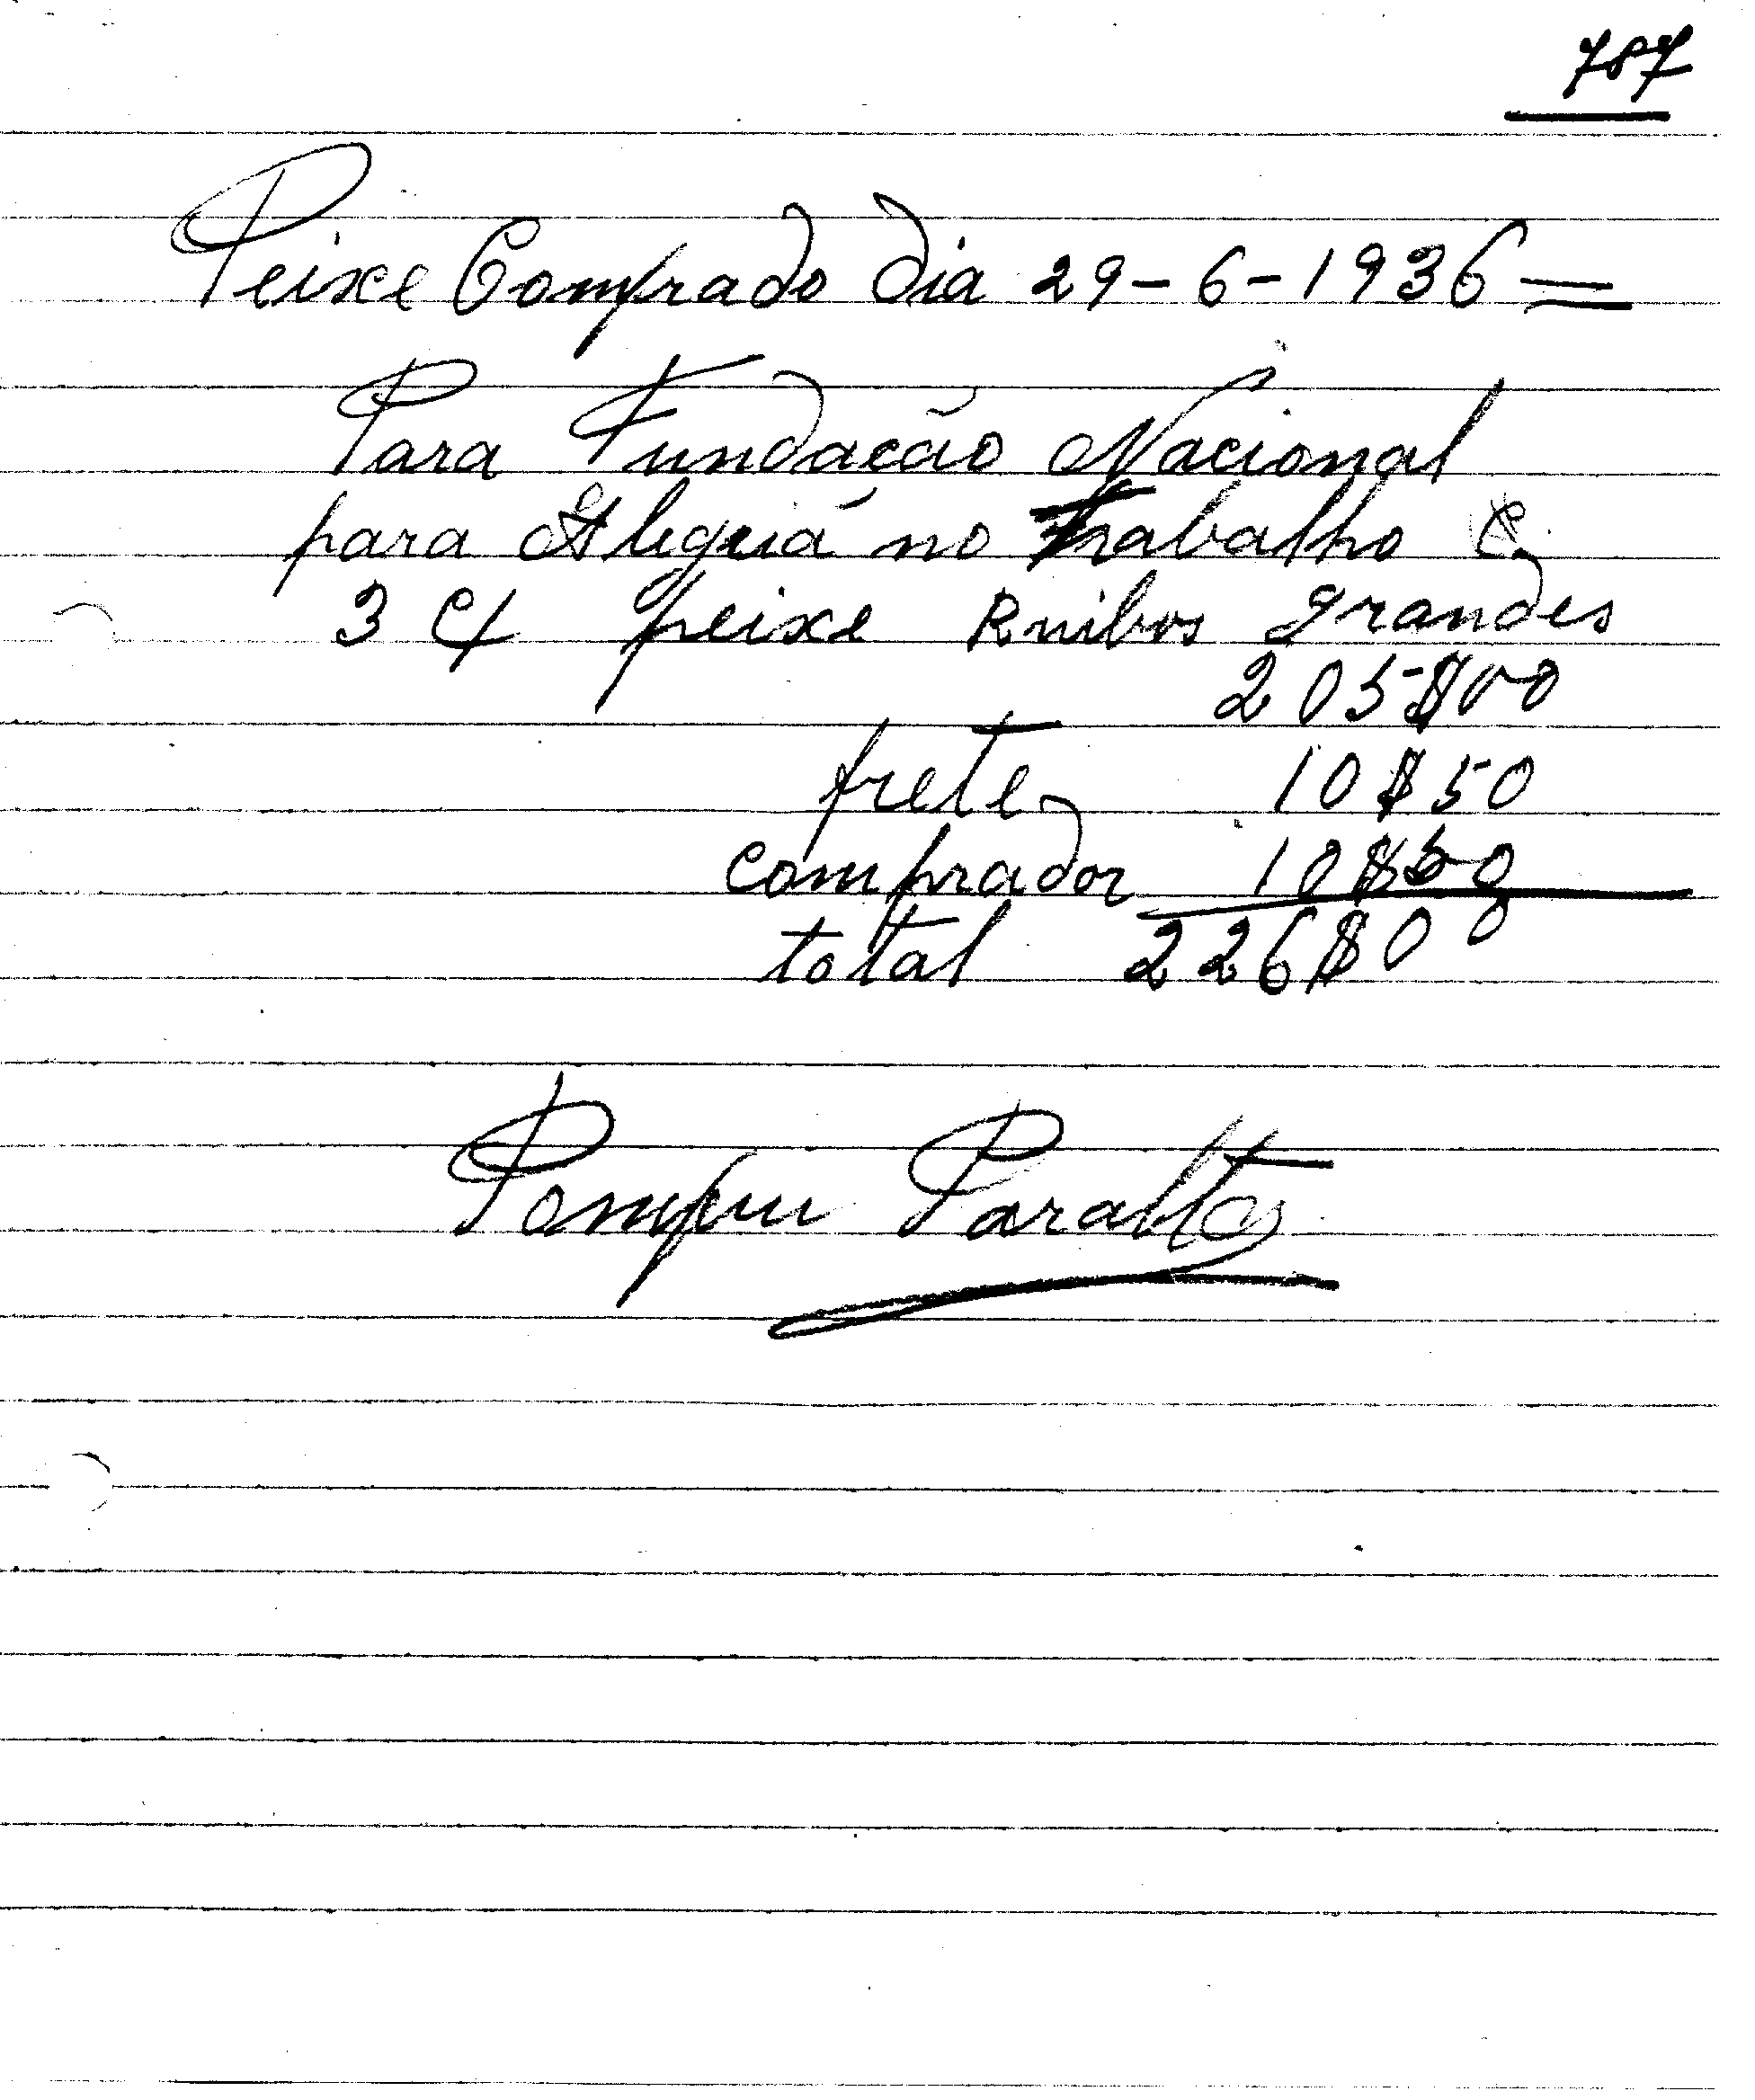 787
Peixe Comprado dia 29-6-1936=
Para Fundação Nacional
para Alegria no Trabalho
3 C/ peixe Ruibos grandes
205$00
frete 10$50
comprador 10$50
total 226$00
Pompeu